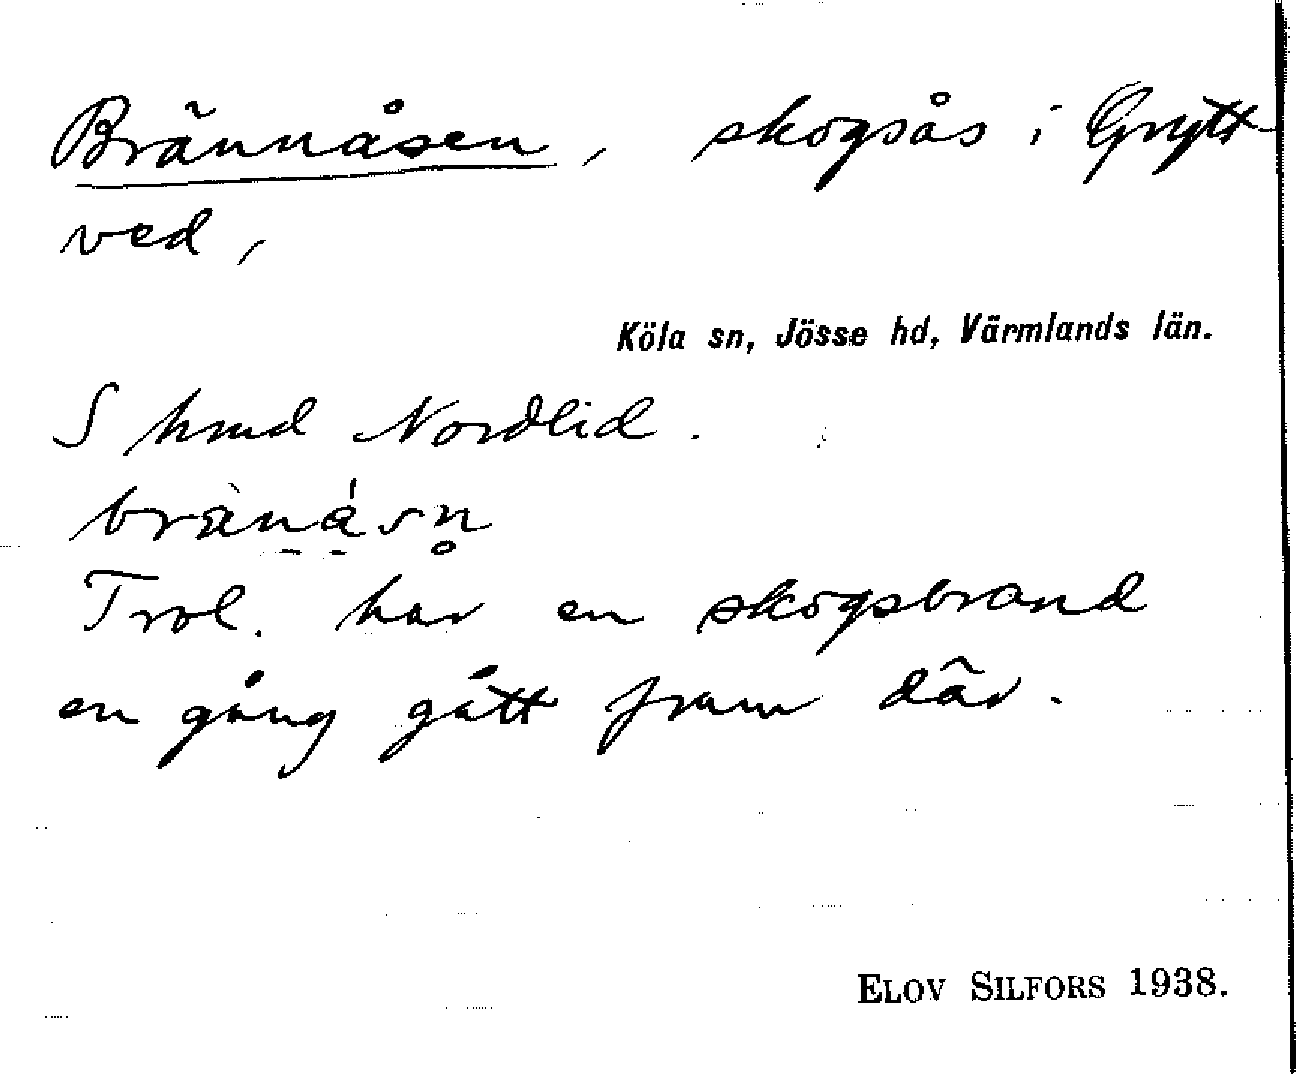 Brännåsen, skogsås i Grytt
ved,
Köla sn, Jösse hd, Värmlands län.
S hmd Nordlid.
brä̀nåsn̥
Trol. har en skogsbrand
en gång gått fram där.
ELOV SILFORS 1938.